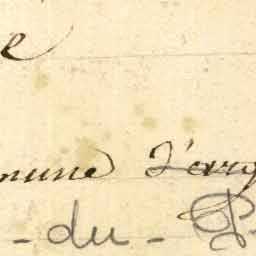 e
mune d'arg
- du - P